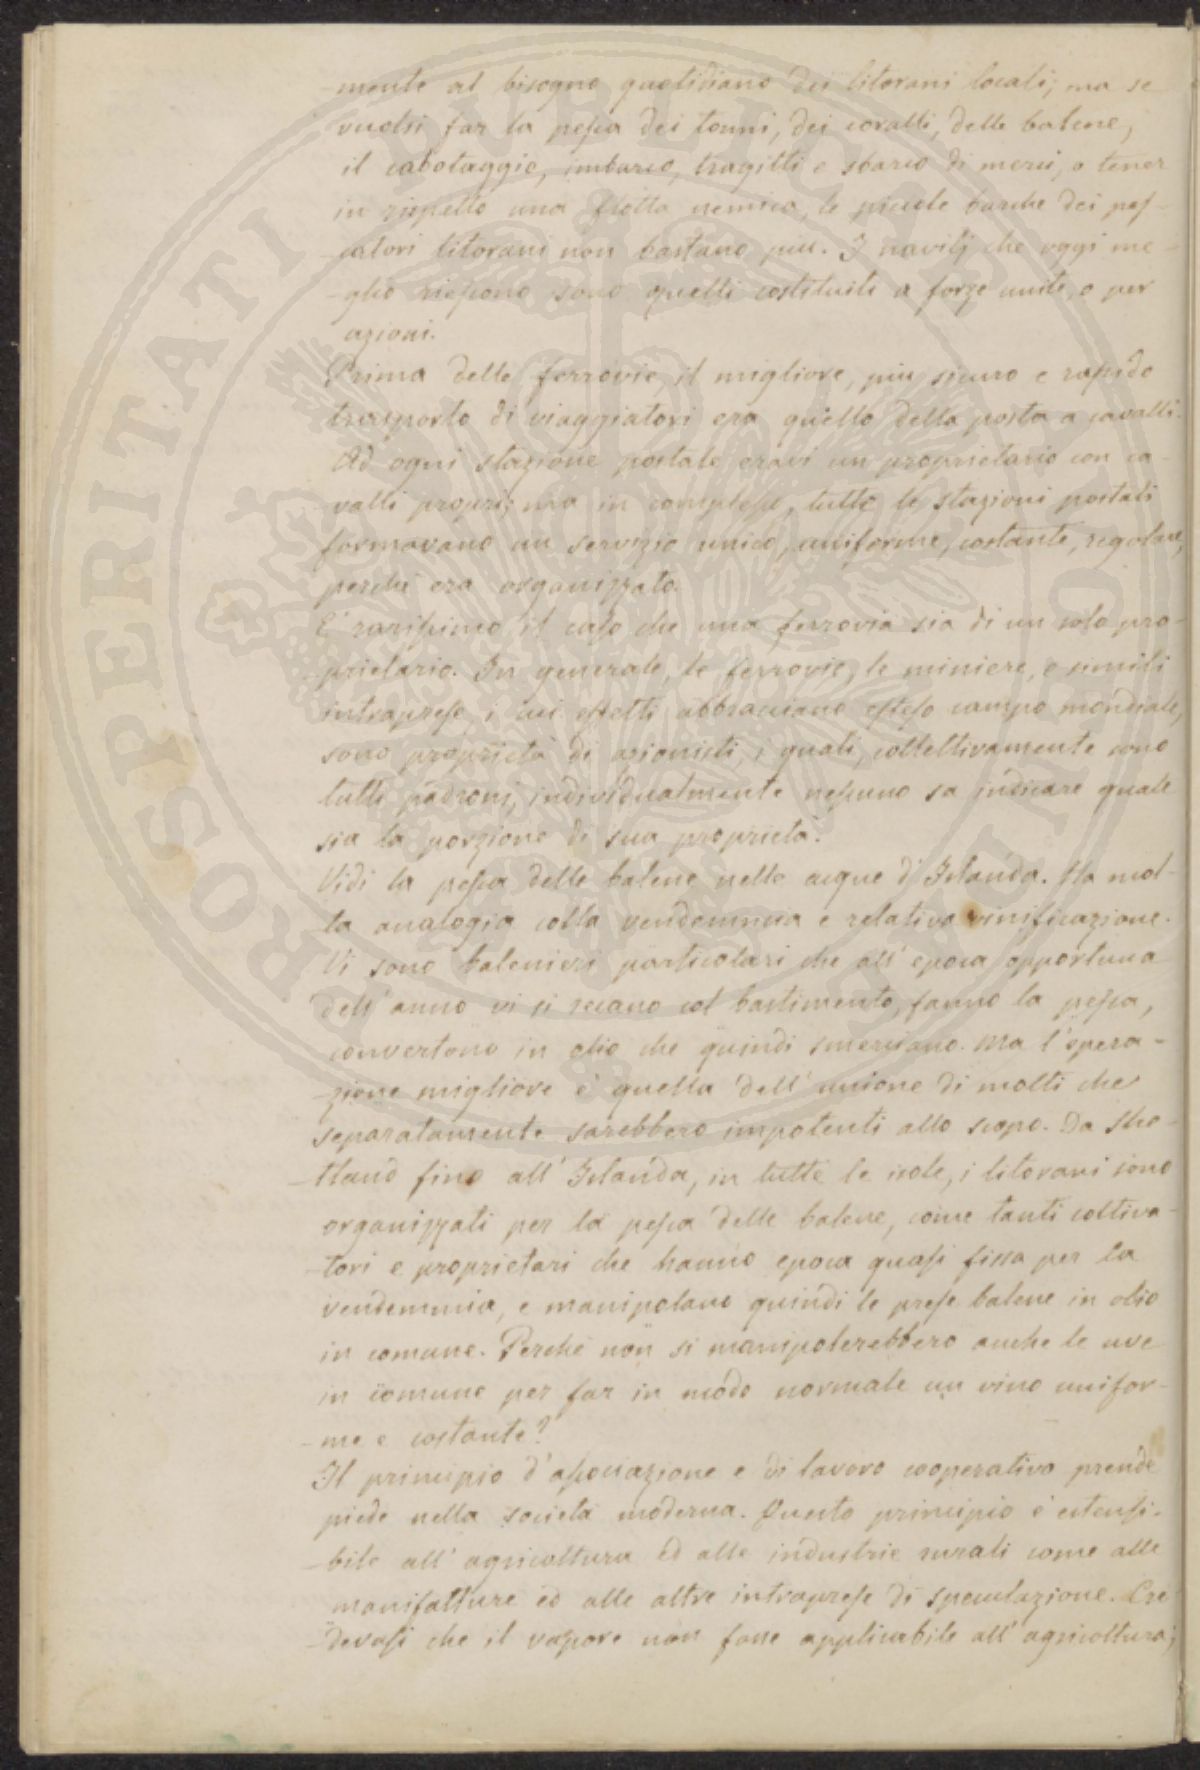 -mente al bisogno quotidiano dei litorani locali; ma se
vuolsi far la pesca dei tonni, dei coralli, delle balene,
il cabotaggio, imbarco, tragitti e sbarco di merci, o tener
in rispetto una flotta nemica, le piccole barche dei pes-
-catori litorani non bastano più. I navilj che oggi me-
-glio riescono sono quelli costituiti a forze unite, o per
azioni.
Prima delle ferrovie, il migliore, più sicuro e rapido
trasporto di viaggiatori era quello della posta a cavalli.
Ad ogni stazione postale eravi un proprietario con ca-
-valli proprj; ma in complesso, tutte le stazioni postali
formavano un servizio unico, uniforme, costante, regolare,
perchè era organizzato.
E' rarissimo il caso che una ferrovia sia di un solo pro-
-prietario. In generale, le ferrovie, le miniere, e simili
intraprese, i cui effetti abbracciano esteso campo mondiale,
sono proprietà di azionisti, i quali, collettivamente sono
tutti padroni, individualmente nessuno sa indicare quale
sia la porzione di sua proprietà.
Vidi la pesca delle balene nelle acque d'Islanda. Ha mol-
-ta analogia colla vendemmia e relativa vinificazione.
Vi sono balenieri particolari che all'epoca opportuna
dell'anno vi si recano col bastimento, fanno la pesca,
convertono in olio che quindi smerciano. Ma l'opera-
-zione migliore è quella dell'unione di molti che
separatamente sarebbero impotenti allo scopo. Da She-
-tland fino all'Islanda, in tutte le isole, i litorani sono
organizzati per la pesca delle balene, come tanti coltiva-
-tori e proprietari che hanno epoca quasi fissa per la
vendemmia, e manipolano quindi le prese balene in olio
in comune. Perchè non si manipolerebbero anche le uve
in comune per far in modo normale un vino unifor-
-me e costante?
Il principio d'associazione e di lavoro cooperativo prende
piede nella società moderna. Questo principio è estensi-
-bile all'agricoltura ed alle industrie rurali come alle
manifatture ed alle altre intraprese di speculazione. Cre-
-devasi che il vapore non fosse applicabile all'agricoltura;
PROSPERITATI PUBLICAE